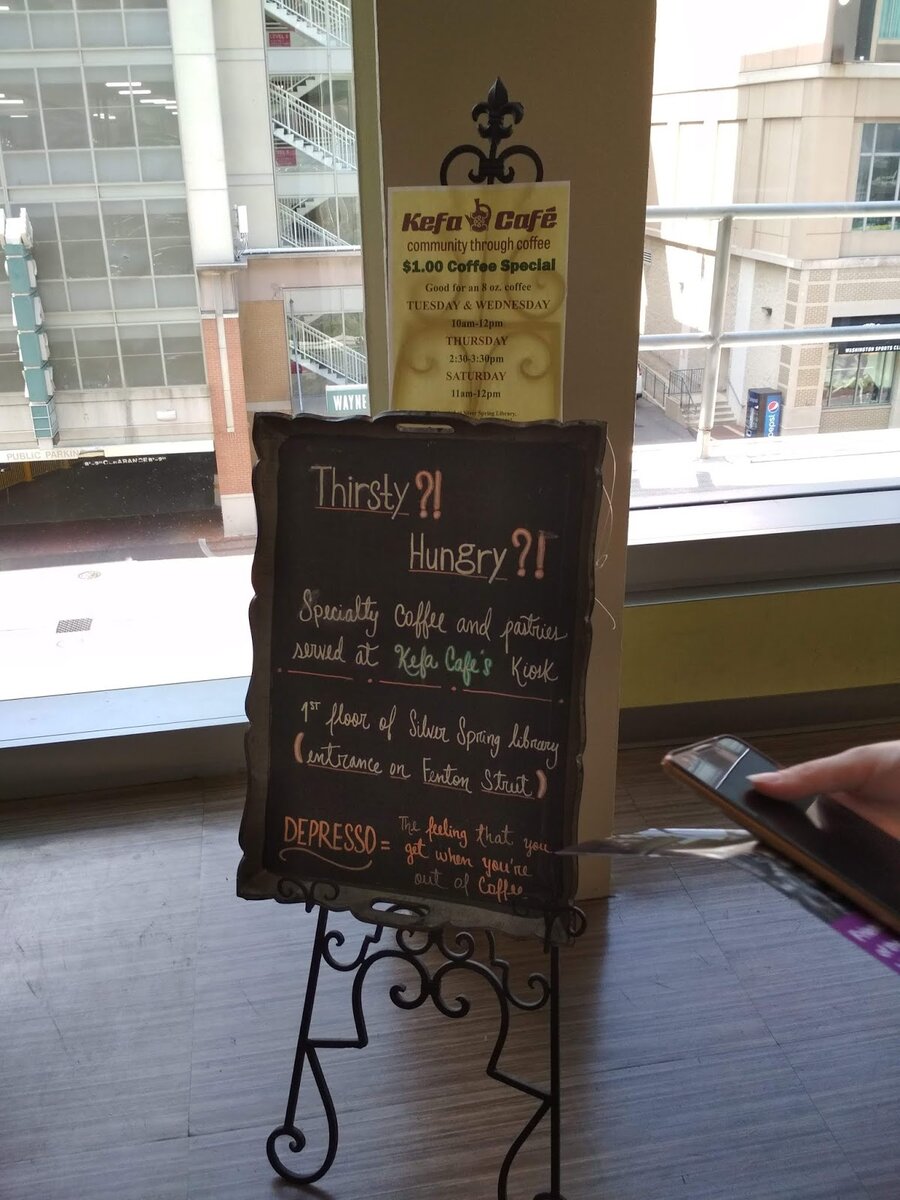 Kefa Café
community through coffee
$1.00 Coffee Special
Good for an 8 oz. coffee
TUESDAY & WEDNESDAY
10am-12pm
THURSDAY
2:30-3:30pm
SATURDAY
11am-12pm
Silver Spring Library.
Thirsty?!
Hungry?!
Specialty coffee and pastries
served at Kefa Cafe's Kiosk
1ST floor of Silver Spring library
(entrance on Fenton Street)
DEPRESSO = The feeling that you
get when you're
out of Coffee
WAYNE
PUBLIC PARKING
CLEARANCE
WASHINGTON SPORTS CL
pepsi